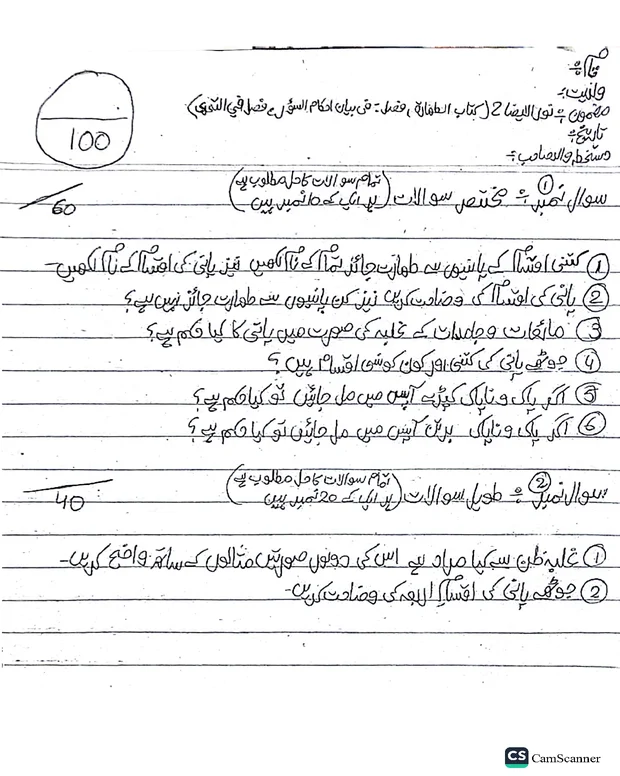 نام:
ولدیت:
مضمون: نور الایضاح 2 (کتاب الطہارۃ، فصل: فی بیان احکام السؤر، فصل فی التحری)
تاریخ:
دستخط والد صاحب:
100
سوال نمبر 1: مختصر سوالات (تمام سوالات کا حل مطلوب ہے ہر ایک کے 10 نمبر ہیں)
60
① کتنی اقسام کے پانیوں سے طہارت جائز تمام کے نام لکھیں نیز پانی کی اقسام کے نام لکھیں۔
② پانی کی اقسام کی وضاحت کریں نیز کن پانیوں سے طہارت جائز نہیں ہے؟
③ مائعات و جامدات کے غلبہ کی صورت میں پانی کا کیا حکم ہے؟
④ جوٹھے پانی کی کتنی اور کون کونسی اقسام ہیں؟
⑤ اگر پاک و ناپاک کپڑے آپس میں مل جائیں تو کیا حکم ہے؟
⑥ اگر پاک و ناپاک برتن آپس میں مل جائیں تو کیا حکم ہے؟
سوال نمبر 2: طویل سوالات (تمام سوالات کا حل مطلوب ہے ہر ایک کے 20 نمبر ہیں)
40
① غلبہ ظن سے کیا مراد ہے اس کی دونوں صورتیں مثالوں کے ساتھ واضح کریں۔
② جوٹھے پانی کی اقسامِ اربعہ کی وضاحت کریں۔
CS CamScanner